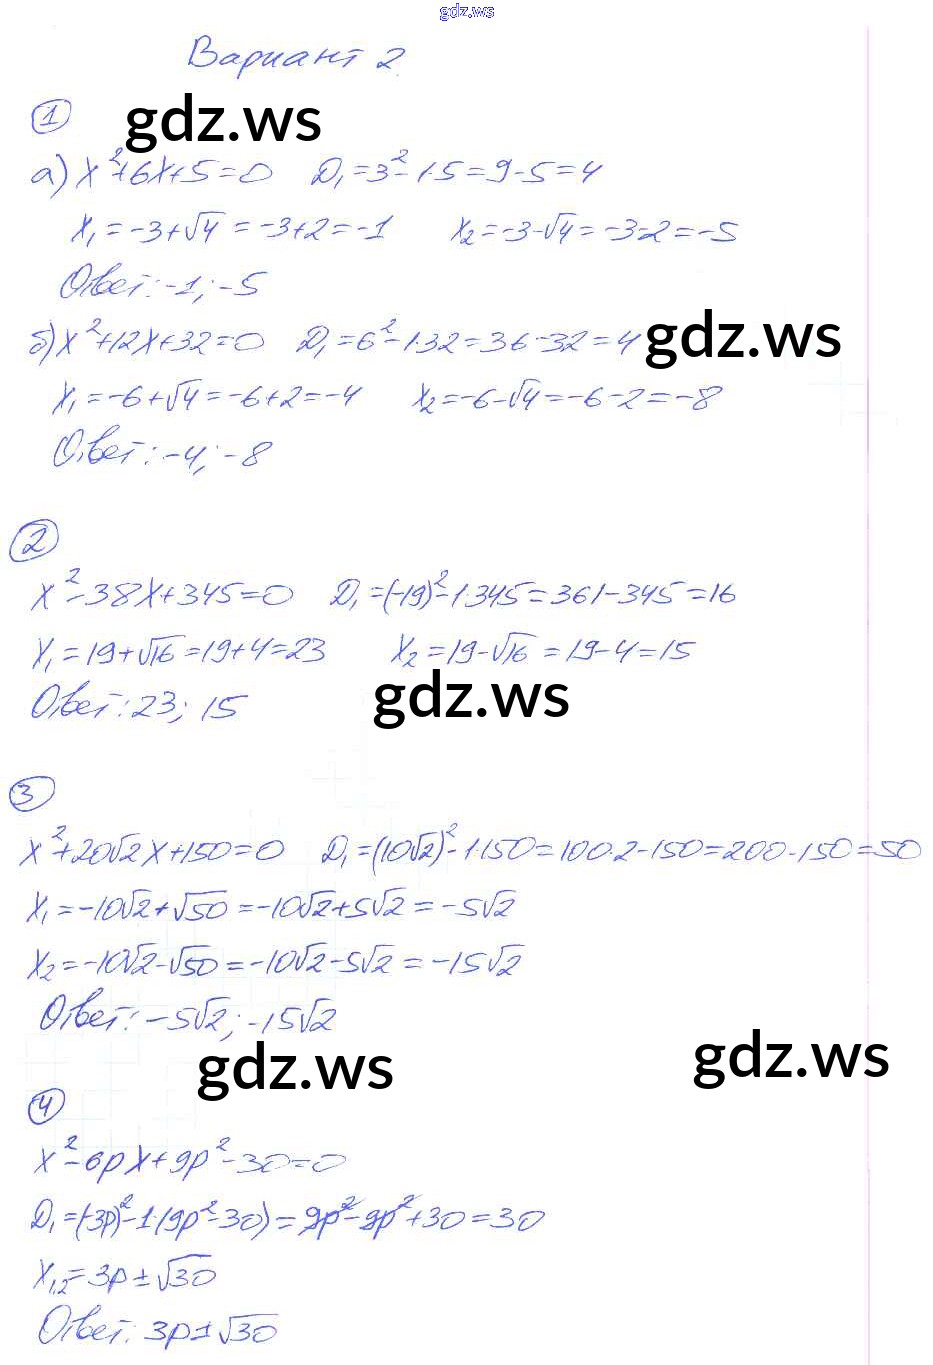 gdz.ws
Вариант 2
1
gdz.ws
а) x²+6x+5=0 D₁=3²-1·5=9-5=4
x₁=-3+√4=-3+2=-1 x₂=-3-√4=-3-2=-5
Ответ: -1; -5
б) x²+12x+32=0 D₁=6²-1·32=36-32=4
gdz.ws
x₁=-6+√4=-6+2=-4 x₂=-6-√4=-6-2=-8
Ответ: -4; -8
2
x²-38x+345=0 D₁=(-19)²-1·345=361-345=16
x₁=19+√16=19+4=23 x₂=19-√16=19-4=15
Ответ: 23; 15
gdz.ws
3
x²+20√2x+150=0 D₁=(10√2)²-1·150=100·2-150=200-150=50
x₁=-10√2+√50=-10√2+5√2=-5√2
x₂=-10√2-√50=-10√2-5√2=-15√2
Ответ: -5√2; -15√2
gdz.ws
gdz.ws
4
x²-6px+9p²-30=0
D₁=(-3p)²-1·(9p²-30)=9p²-9p²+30=30
x₁,₂=3p±√30
Ответ: 3p±√30